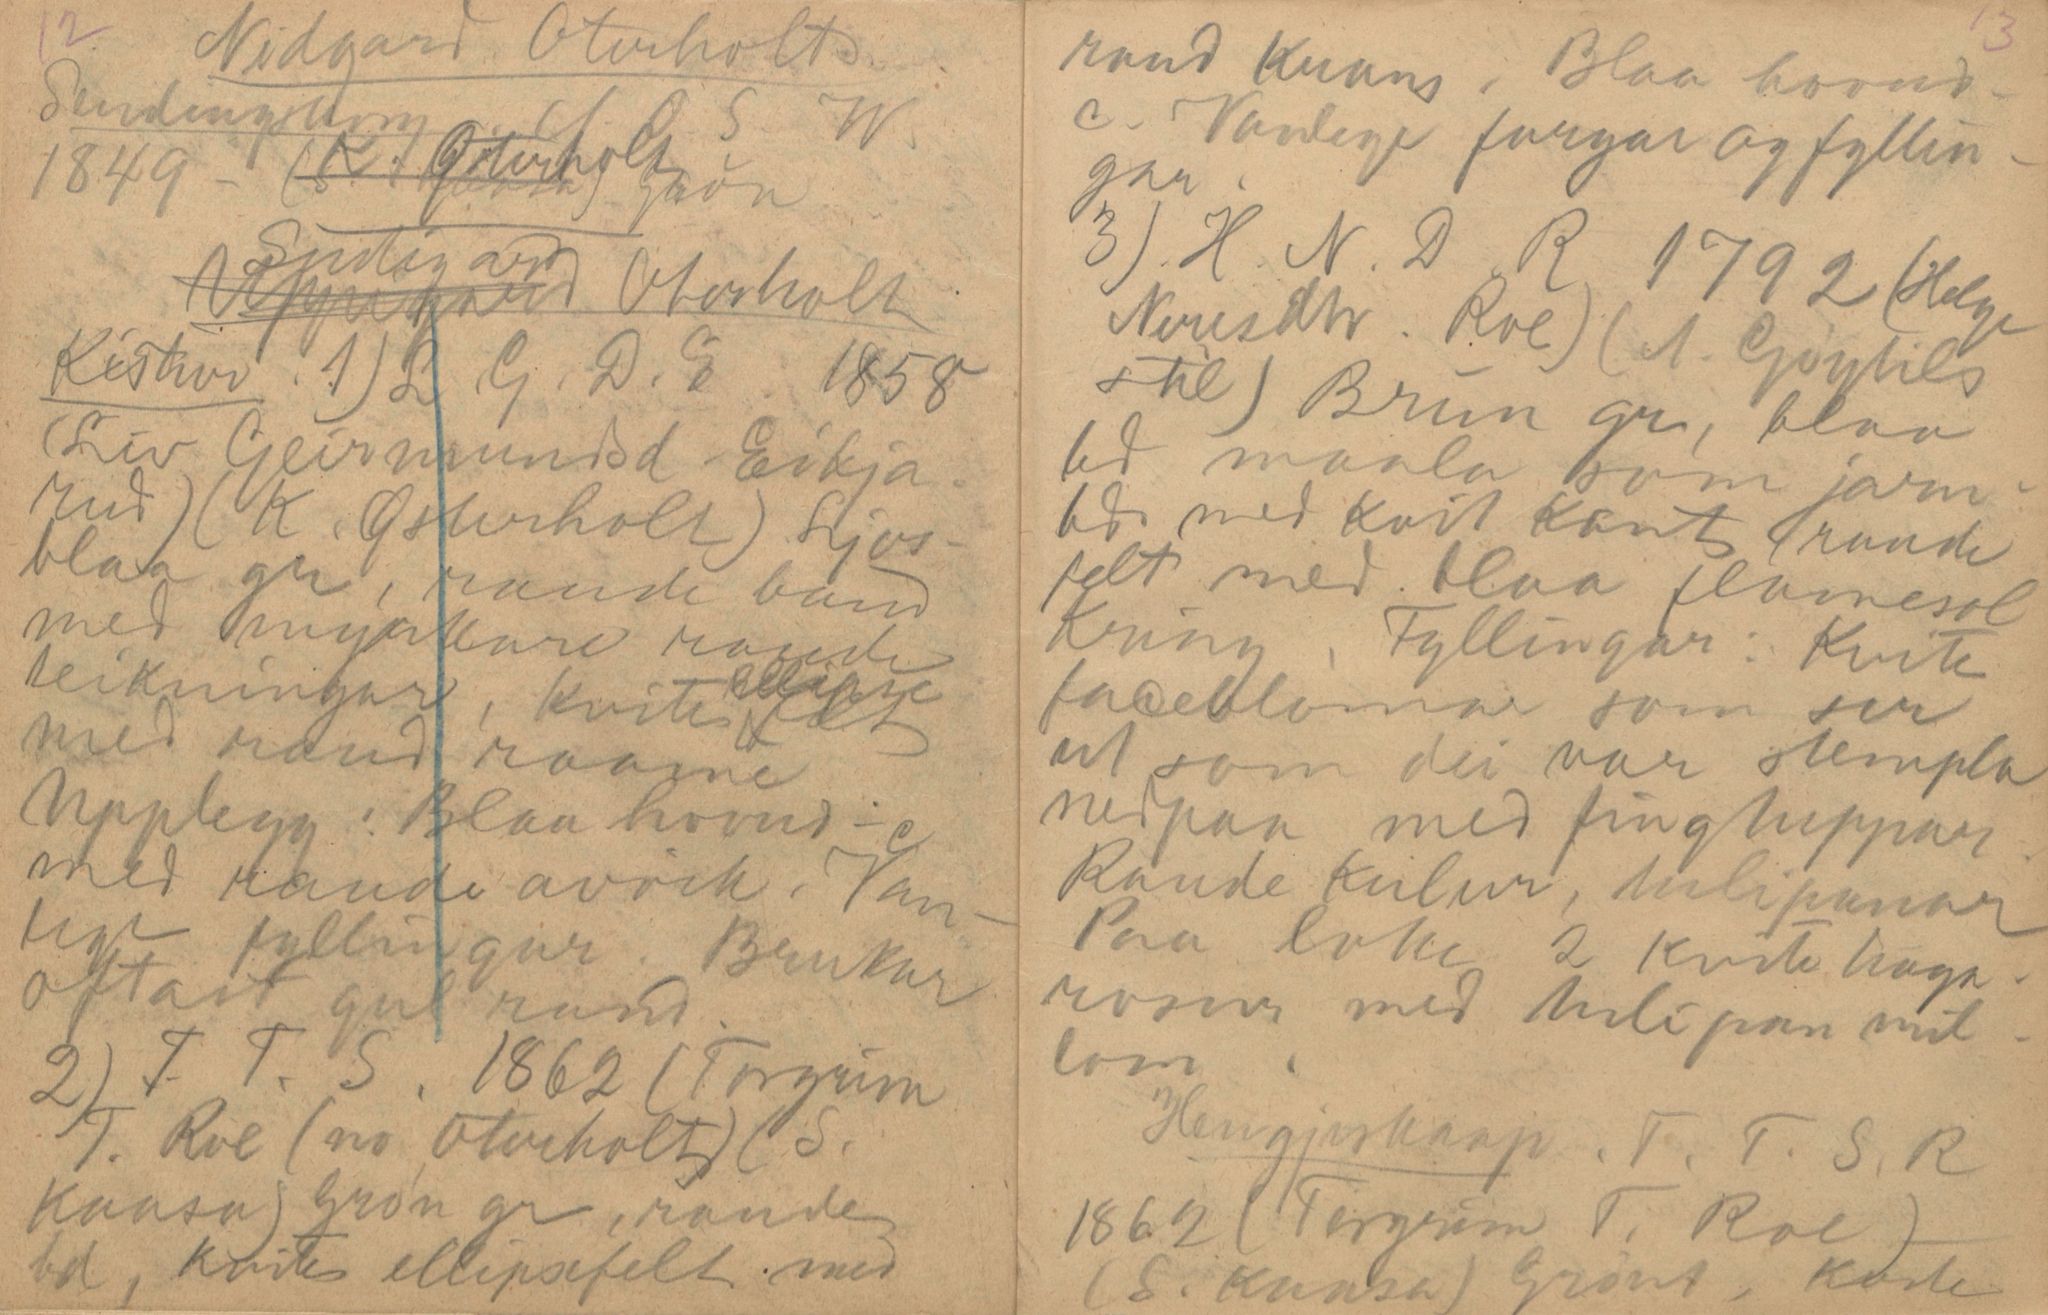 12
Nidgard Oterholt.
Sendingskorg. A. O. S. W.
1849 - (K. Østerholt) Grön
Sudigard
Uppigard Oterholt
Kistur. 1) L G. D. E. 1858
(Liv Geirmundsd Eikja-
rud) (K. Østerholt) Ljos-
blaa gr, raude band
med myrkare raude
teikningar, kvite ellipse felt
med raud raame
Upplegg: Blaa hovud-c
med raude avörk. Van-
lege fyllingar. Brukar
oftast gul rand.
2) T. T. S. 1862 (Torgrim
T. Roe (no Oterholt) (S.
Kaasa) Grön gr, raude
bd, kvite ellipsefelt med
13
raud krans. Blaa hovud-
c. Vanlege fargar og fyllin-
gar.
3). H. N. D. R 1792 (Helge
Neresdtr. Roe) (A. Göytils
stil) Brun gr, blaa
bd maala som jarn-
bd med kvit kant, raude
felt med blaa flamesol
kring. Fyllingar: Kvite
faceblomar som ser
ut som dei var stempla
nedpaa med fingtuppar.
Raude kulur, tulipanar
Paa loke 2 kvite haga-
rosur med tulipan mil-
lom.
Hengjeskaap. T. T. S. R
1862 (Torgrim T. Roe)
(S. Kaasa) Grönt, kvite